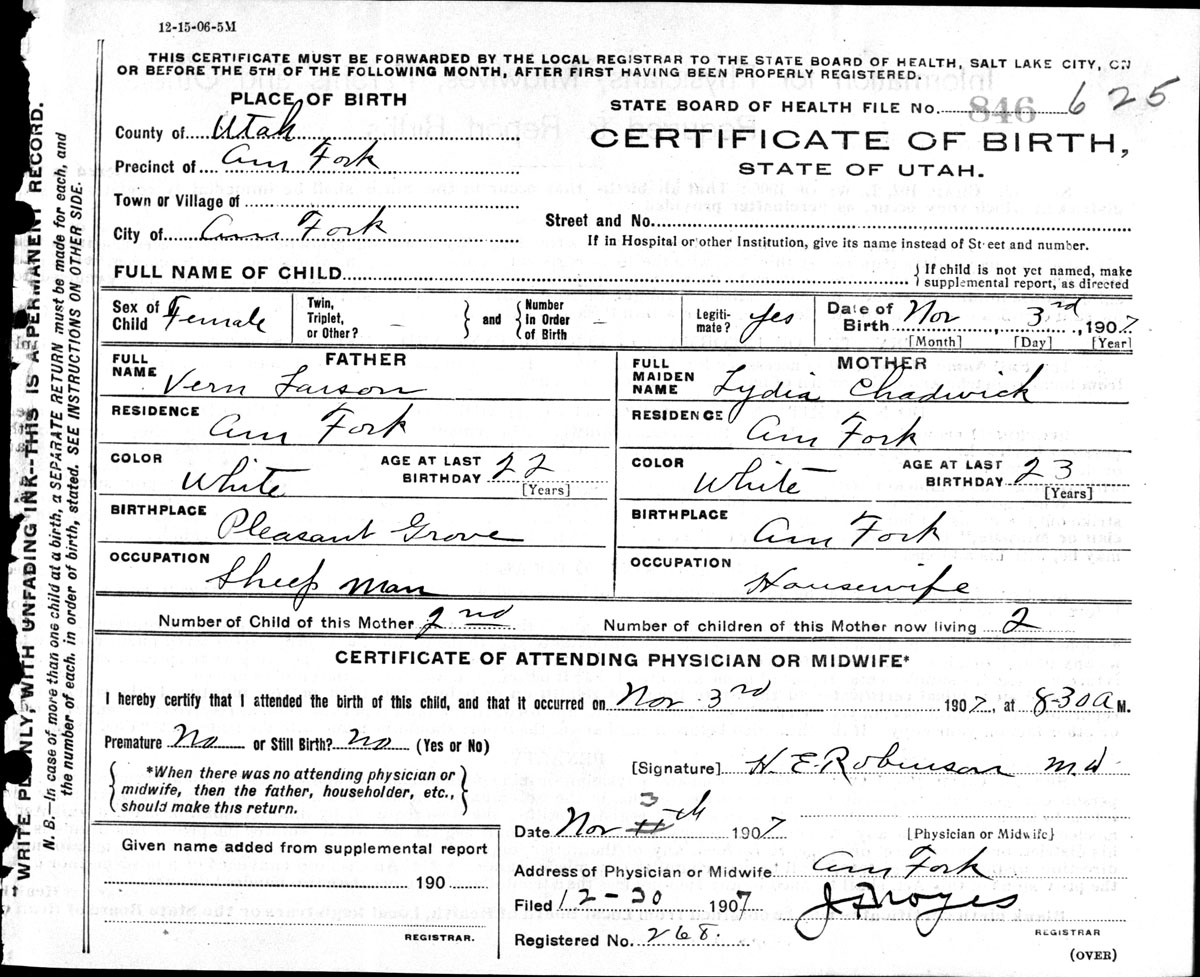 12-15-06-5M
THIS CERTIFICATE MUST BE FORWARDED BY THE LOCAL REGISTRAR TO THE STATE BOARD OF HEALTH, SALT LAKE CITY, ON
OR BEFORE THE 5TH OF THE FOLLOWING MONTH, AFTER FIRST HAVING BEEN PROPERLY REGISTERED.
PLACE OF BIRTH
STATE BOARD OF HEALTH FILE No. 846 625
County of Utah
CERTIFICATE OF BIRTH,
Precinct of Am Fork
STATE OF UTAH.
Town or Village of
City of Am Fork
Street and No.
If in Hospital or other Institution, give its name instead of Street and number.
FULL NAME OF CHILD
If child is not yet named, make
supplemental report, as directed
Sex of Child Female
Twin, Triplet, or Other? –
and
Number in Order of Birth –
Legiti-mate? Yes
Date of Birth Nov, 3rd, 1907
[Month] [Day] [Year]
FATHER
FULL NAME Vern Larson
RESIDENCE Am Fork
COLOR White
AGE AT LAST BIRTHDAY 22
[Years]
BIRTHPLACE Pleasant Grove
OCCUPATION Sheep man
MOTHER
FULL MAIDEN NAME Lydia Chadwick
RESIDENCE Am Fork
COLOR White
AGE AT LAST BIRTHDAY 23
[Years]
BIRTHPLACE Am Fork
OCCUPATION Housewife
Number of Child of this Mother 2nd
Number of children of this Mother now living 2
CERTIFICATE OF ATTENDING PHYSICIAN OR MIDWIFE*
I hereby certify that I attended the birth of this child, and that it occurred on Nov 3rd 1907, at 8-30 a M.
Premature No or Still Birth? No (Yes or No)
*When there was no attending physician or
midwife, then the father, householder, etc.,
should make this return.
[Signature] H. E. Robinson M.D
Date Nov 3 th 1907
[Physician or Midwife]
Given name added from supplemental report
190
REGISTRAR.
Address of Physician or Midwife Am Fork
Filed 12-30 1907
J F Noyes
REGISTRAR
Registered No. 268.
(OVER)
WRITE PLAINLY, WITH UNFADING INK--THIS IS A PERMANENT RECORD.
N. B.—In case of more than one child at a birth, a SEPARATE RETURN must be made for each, and
the number of each, in order of birth, stated. SEE INSTRUCTIONS ON OTHER SIDE.